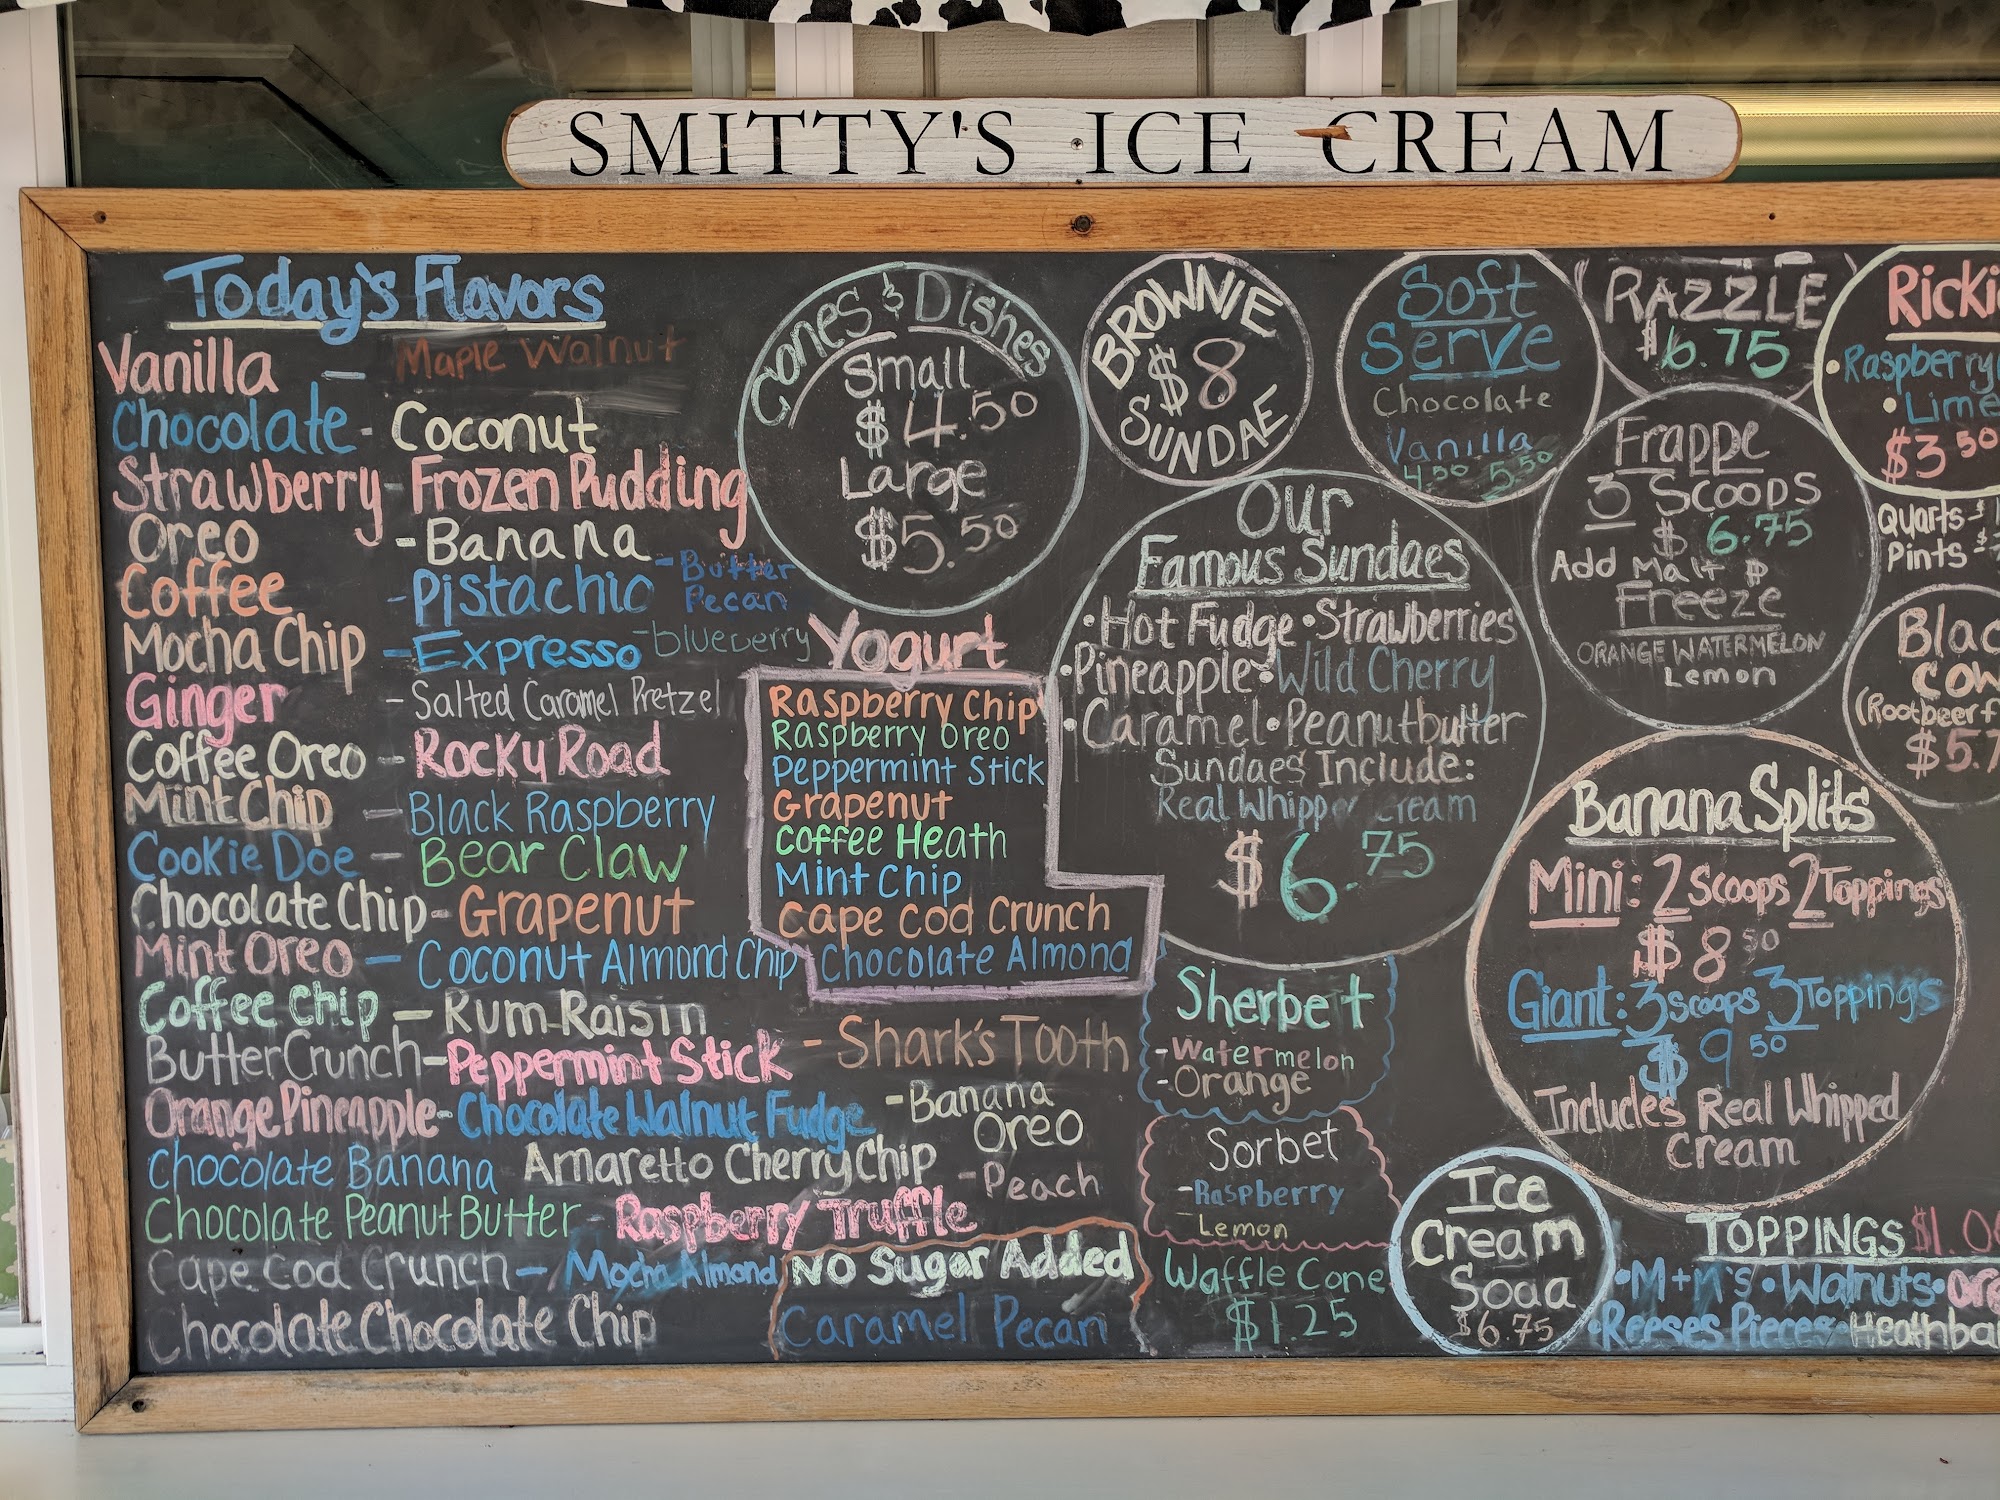 SMITTY'S ICE CREAM
Today's Flavors
Vanilla - Maple Walnut
Chocolate - Coconut
Strawberry - Frozen Pudding
Oreo - Banana
Coffee - Pistachio - Butter Pecan
Mocha Chip - Expresso - blueberry
Ginger - Salted Caramel Pretzel
Coffee Oreo - Rocky Road
Mint Chip - Black Raspberry
Cookie Doe - Bear Claw
Chocolate Chip - Grapenut
Mint Oreo - Coconut Almond Chip
Coffee Chip - Rum Raisin
Butter Crunch - Peppermint Stick - Shark's Tooth
Orange Pineapple - Chocolate Walnut Fudge - Banana Oreo
Chocolate Banana Amaretto Cherry Chip - Peach
Chocolate Peanut Butter - Raspberry Truffle
Cape Cod Crunch - Mocha Almond
Chocolate Chocolate Chip
No Sugar Added
Caramel Pecan
Cones & Dishes
Small
$4.50
Large
$5.50
Yogurt
Raspberry Chip
Raspberry Oreo
Peppermint Stick
Grapenut
Coffee Heath
Mint Chip
Cape Cod Crunch
Chocolate Almond
BROWNIE
$8
SUNDAE
Our
Famous Sundaes
•Hot Fudge •Strawberries
•Pineapple •Wild Cherry
•Caramel •Peanutbutter
Sundaes Include:
Real Whipped Cream
$6.75
Sherbet
-Watermelon
-Orange
Sorbet
-Raspberry
-Lemon
Waffle Cone
$1.25
Soft
Serve
Chocolate
Vanilla
4.50 5.50
RAZZLE
$6.75
Frappe
3 Scoops
$6.75
Add Malt
Freeze
ORANGE WATERMELON
Lemon
Banana Splits
Mini: 2 Scoops 2 Toppings
$8.50
Giant: 3 Scoops 3 Toppings
$9.50
Includes Real Whipped
Cream
Ice
Cream
Soda
$6.75
Ricki
•Raspberry
•Lime
$3.50
Quarts - $
Pints - $
Blac
Cow
(Rootbeer f
$5.7
TOPPINGS $1.0
•M+M's •Walnuts •Ore
•Reeses Pieces •Heathba